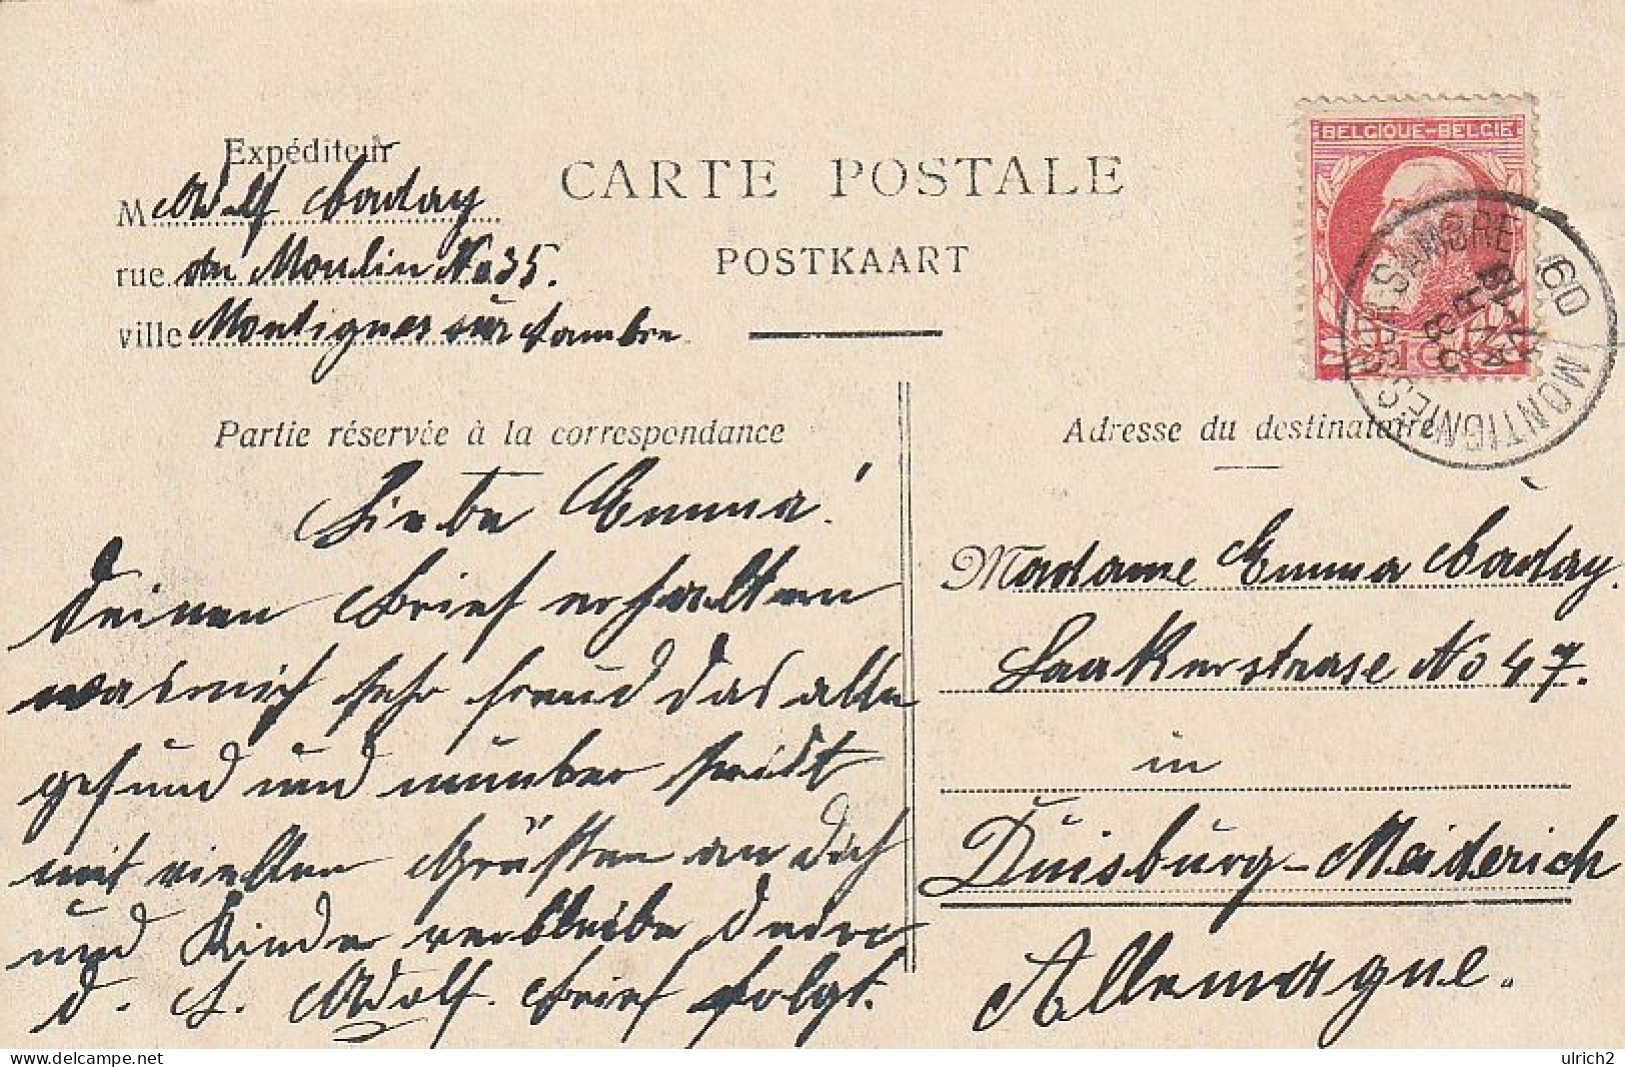 Expéditeur
CARTE POSTALE
M Adolf
rue du Moulin No 35.
POSTKAART
ville Montignes sur Sambre
BELGIQUE-BELGIË
10
MONTIGNIES-SUR-SAMBRE
Partie réservée à la correspondance
Adresse du destinataire
Liebe Emma!
Deinen Brief erhalten
was mich sehr freud das alle
gesund und munber seidt
mit viellen Grüßen an Dich
und Kinder verbleibe
d. L. Adolf. Brief folgt.
Madame Emma
Laakerstrase No 47.
in
Duisburg-Meiderich
Allemagne.
delcampe.net
ulrich2